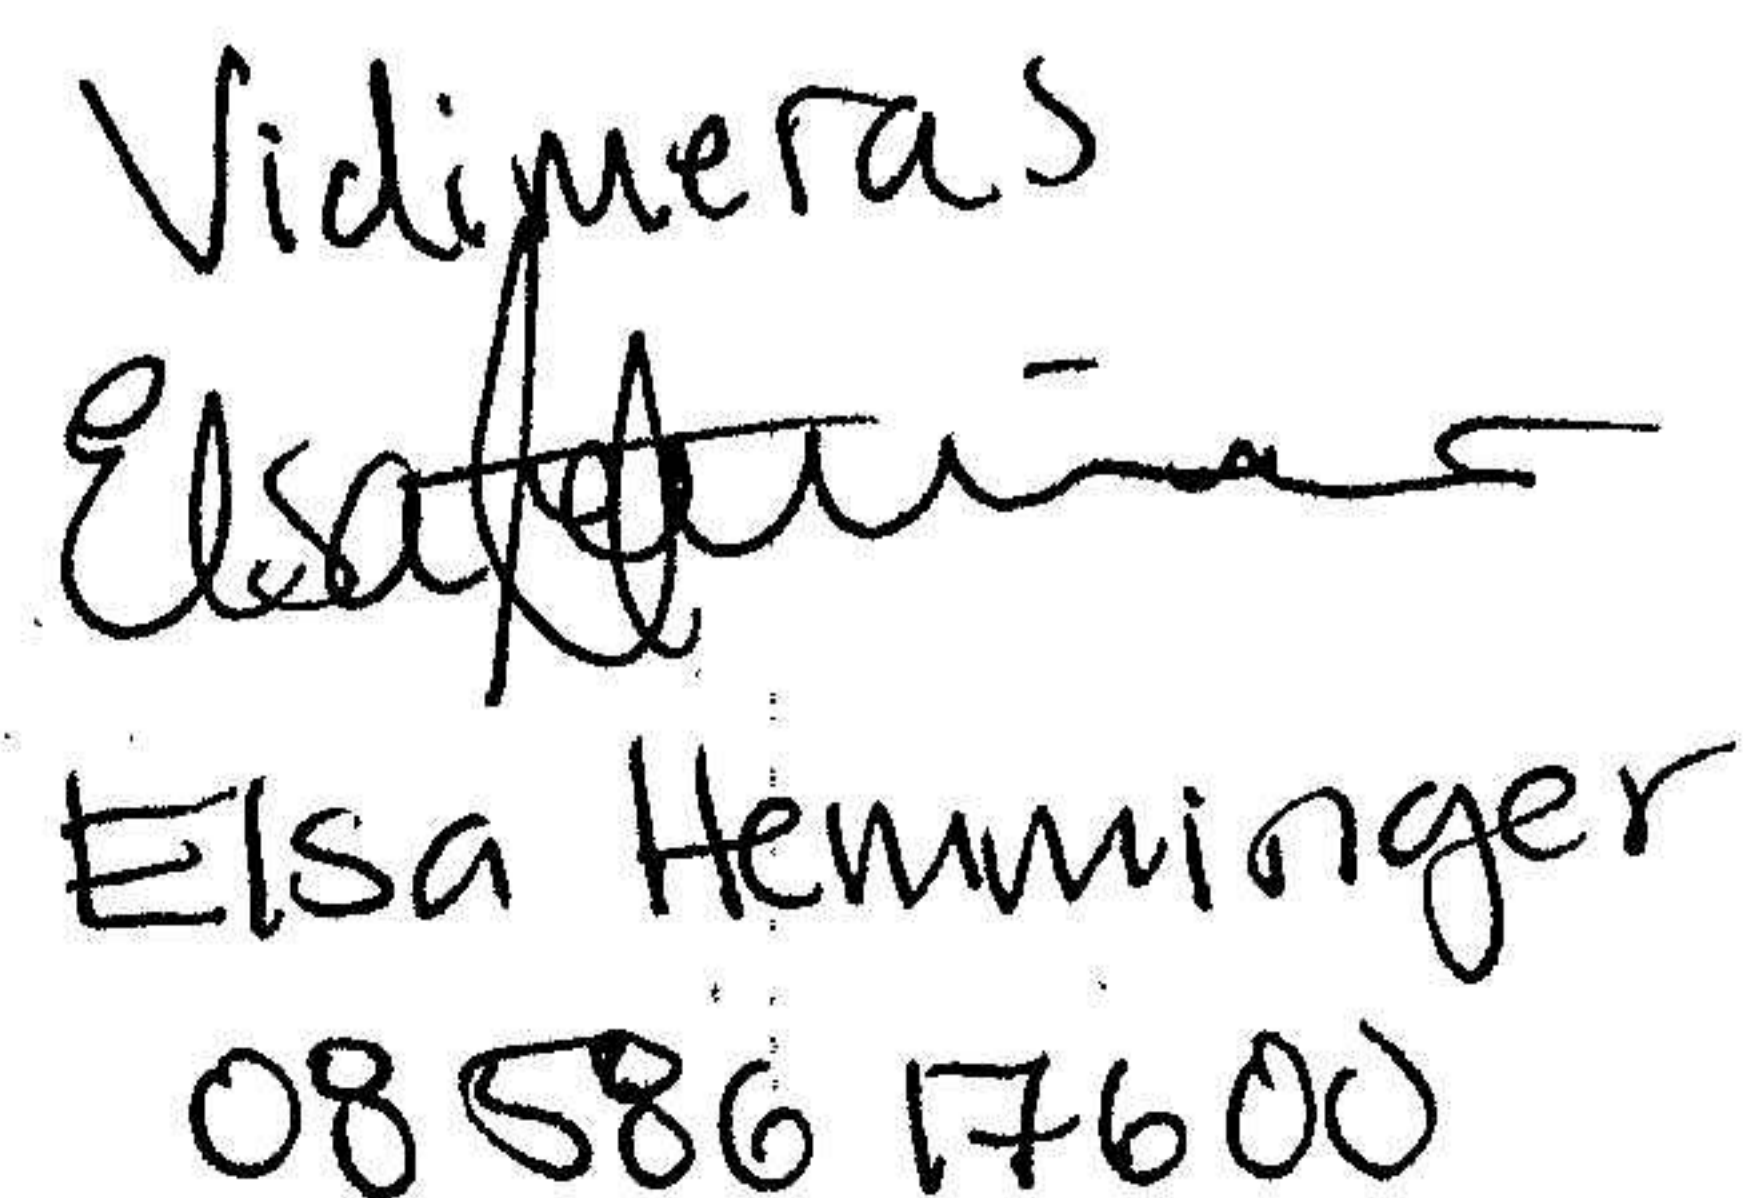 Vidimeras
Elsa
Elsa Hemminger
08 586 17600